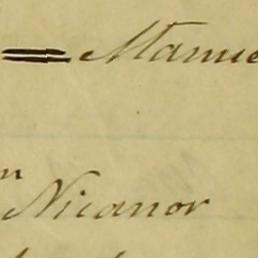 = Manue
n Nicanor